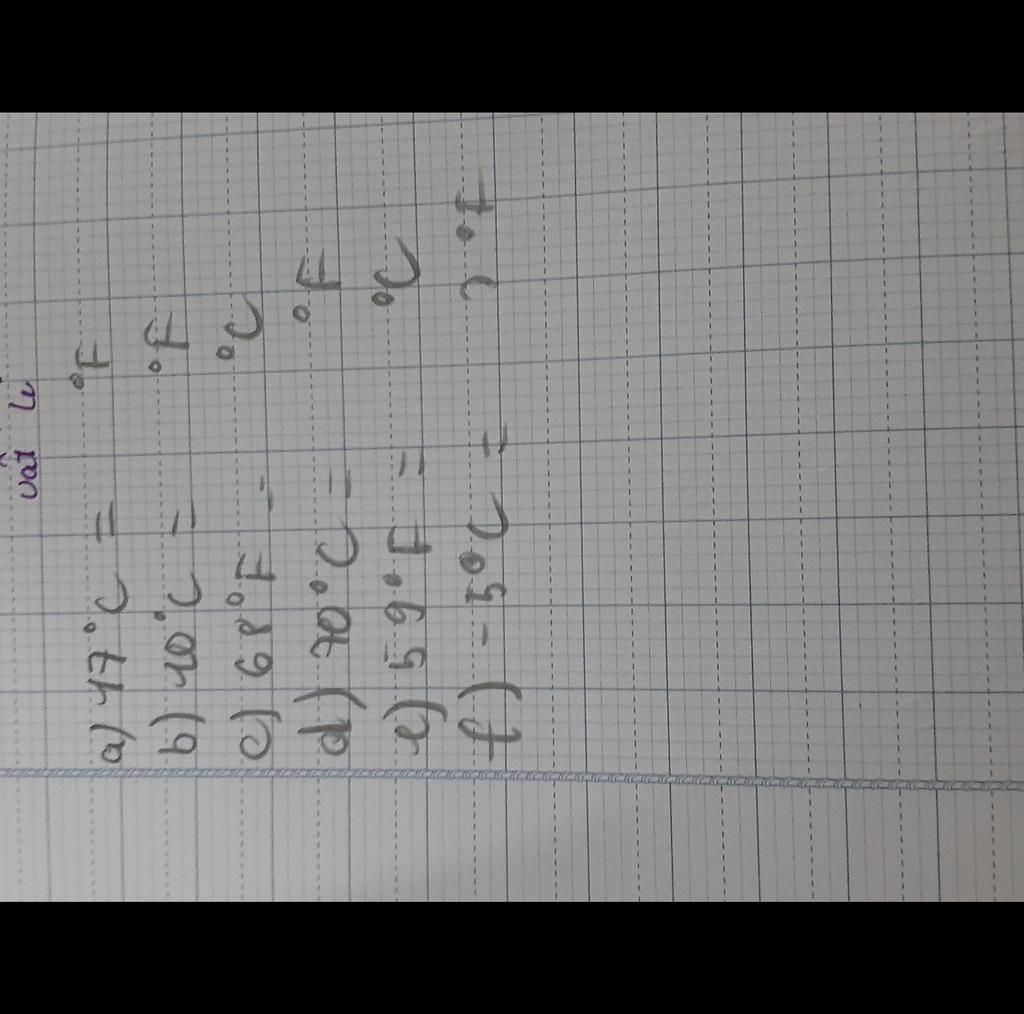 vật lí
a) 17°C = °F
b) 10°C = °F
c) 68°F = °C
d) 70°C = °F
e) 59°F = °C
f) -5°C = ? °F